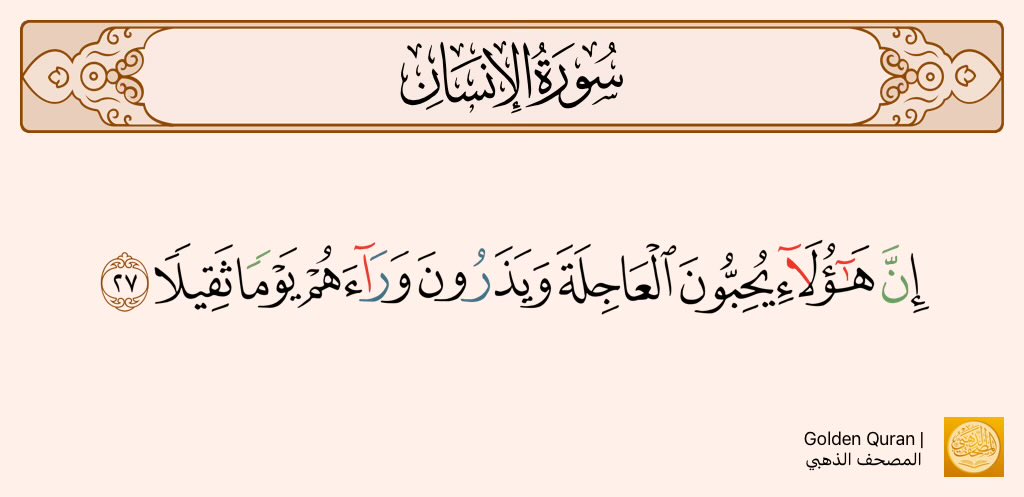 سُورَةُ الإِنسَانِ
إِنَّ هَٰٓؤُلَآءِ يُحِبُّونَ ٱلْعَاجِلَةَ وَيَذَرُونَ وَرَآءَهُمْ يَوْمًا ثَقِيلًا ٢٧
Golden Quran |
المصحف الذهبي
المصحف الذهبي